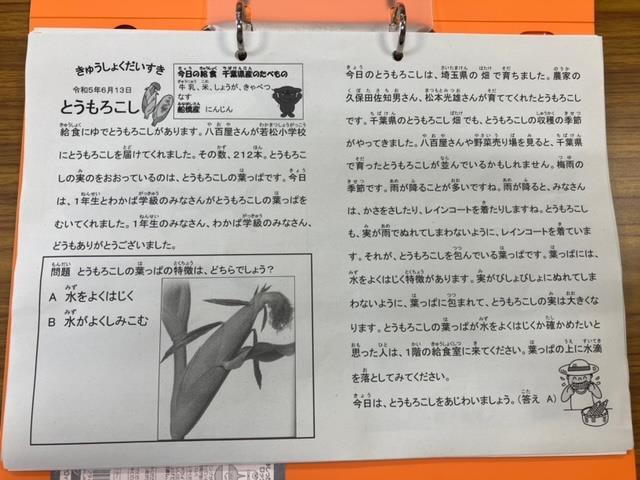 きゅうしょくだいすき
令和5年6月13日
とうもろこし
今日の給食 千葉県産のたべもの
牛乳、米、しょうが、きゃべつ、
なす
船橋産 にんじん
給食にゆでとうもろこしがあります。八百屋さんが若松小学校
にとうもろこしを届けてくれました。その数、212本。とうもろこ
しの実のをおおっているのは、とうもろこしの葉っぱです。今日
は、1年生とわかば学級のみなさんがとうもろこしの葉っぱを
むいてくれました。1年生のみなさん、わかば学級のみなさん、
どうもありがとうございました。
問題 とうもろこしの葉っぱの特徴は、どちらでしょう?
A 水をよくはじく
B 水がよくしみこむ
今日のとうもろこしは、埼玉県の畑で育ちました。農家の
久保田佐知男さん、松本光雄さんが育ててくれたとうもろこし
です。千葉県のとうもろこし畑でも、とうもろこしの収穫の季節
がやってきました。八百屋さんや野菜売り場を見ると、千葉県
で育ったとうもろこしが並んでいるかもしれません。梅雨の
季節です。雨が降ることが多いですね。雨が降ると、みなさん
は、かさをさしたり、レインコートを着たりしますね。とうもろこし
も、実が雨でぬれてしまわないように、レインコートを着ていま
す。それが、とうもろこしを包んでいる葉っぱです。葉っぱには、
水をよくはじく特徴があります。実がびしょびしょにぬれてしま
わないように、葉っぱに包まれて、とうもろこしの実は大きくな
ります。とうもろこしの葉っぱが水をよくはじくか確かめたいと
思った人は、1階の給食室に来てください。葉っぱの上に水滴
を落としてみてください。
今日は、とうもろこしをあじわいましょう。(答え A)